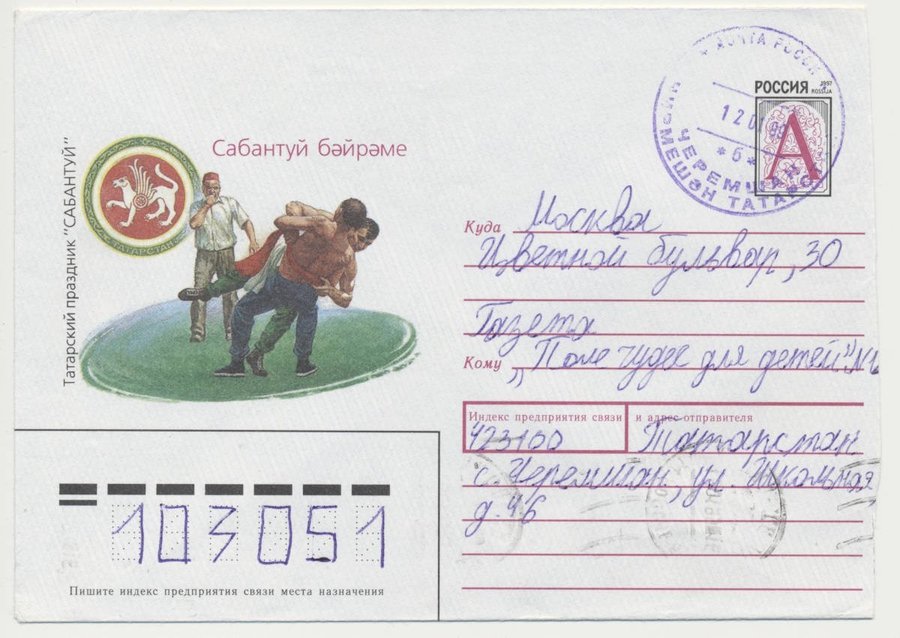 Татарский праздник "САБАНТУЙ"
Сабантуй бәйрәме
ТАТАРСТАН
ПОЧТА РОССИИ
ЧЕРЕМШАН
РОССИЯ
1997
ROSSIJA
А
Куда Москва
Цветной бульвар, 30
Газета
Кому "Поле чудес для детей"
Индекс предприятия связи и адрес отправителя
423100 Татарстан
с. Черемшан, ул. Школьная
д. 46
103051
Пишите индекс предприятия связи места назначения